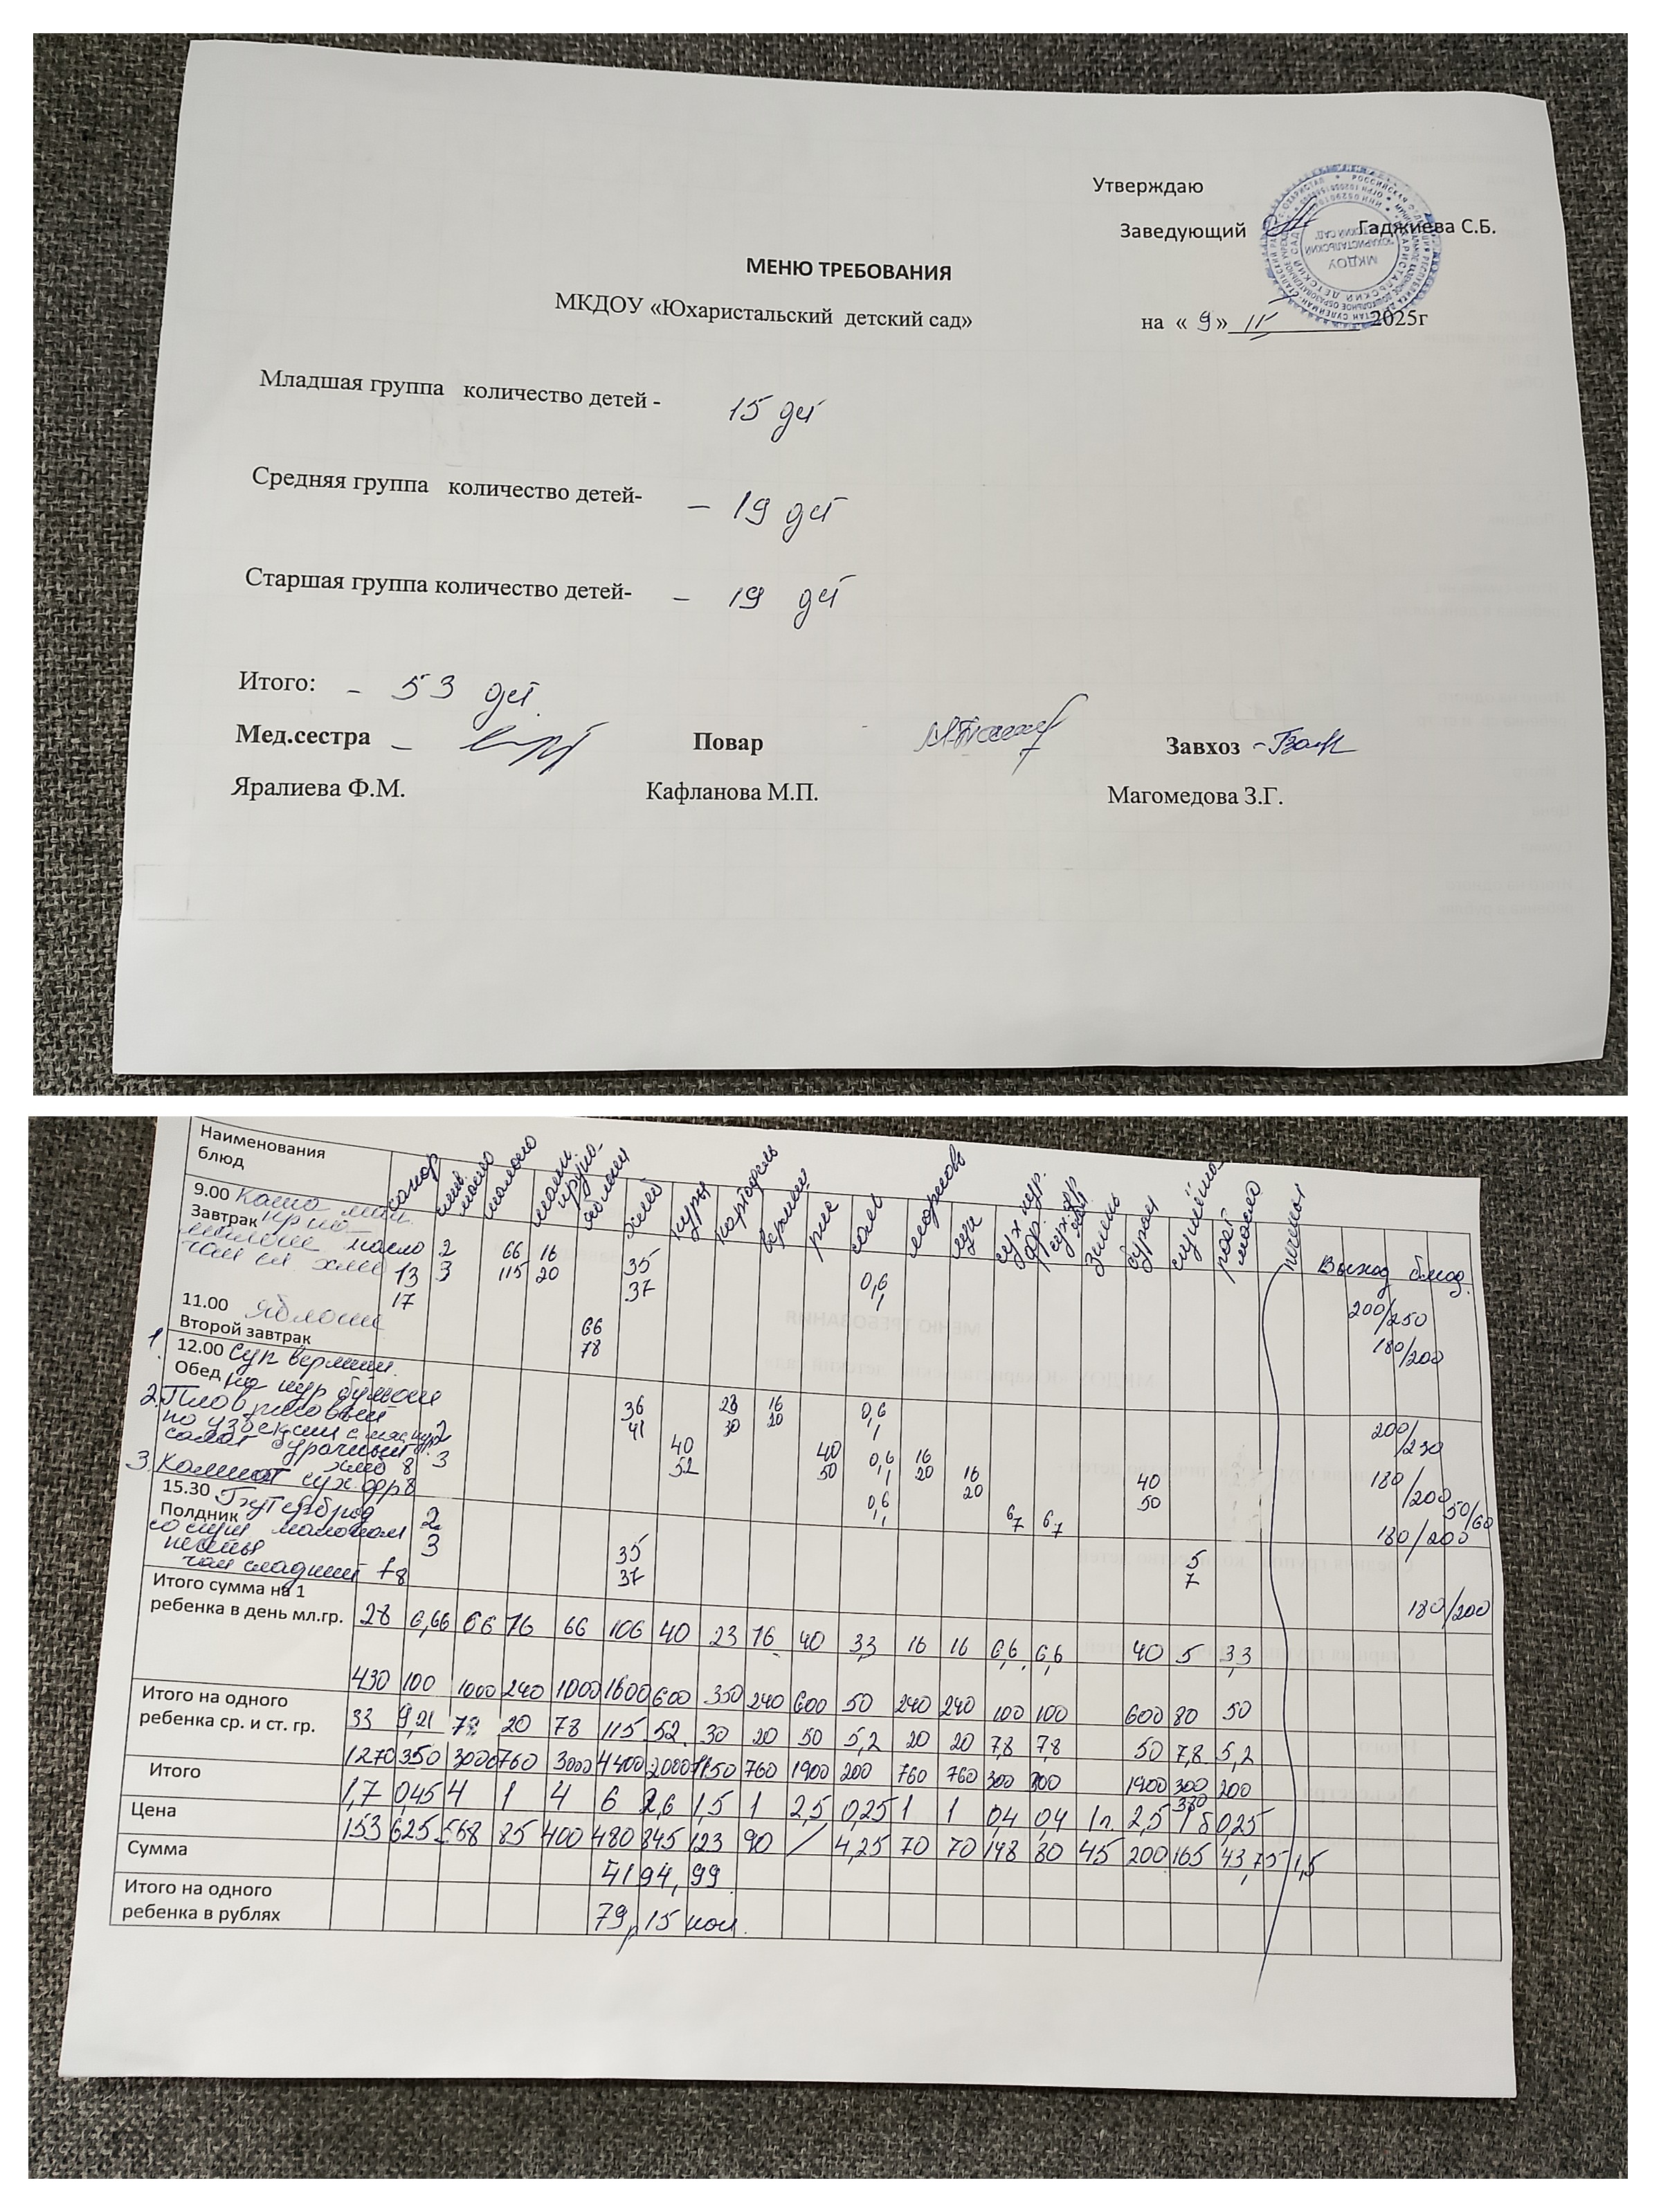 Утверждаю
Заведующий Гаджиева С.Б.
МЕНЮ ТРЕБОВАНИЯ
МКДОУ «Юхаристальский детский сад»
на « 9 » 2025г
Младшая группа количество детей - 15 дет
Средняя группа количество детей- - 19 дет
Старшая группа количество детей- - 19 дет
Итого: - 53 дет.
Мед.сестра - Повар Завхоз -
Яралиева Ф.М. Кафланова М.П. Магомедова З.Г.
Наименования блюд сахар слив. масло молоко яблоки хлеб куры картофель рис соль морковь сух. фр. зелень бурак раст масло Выход блюд.
9.00 Каша
Завтрак масло 2 66 16 35 0,6 200/250
13 3 115 20 37 1
17
11.00 Яблоки 66 180/200
Второй завтрак 78
1. 12.00 Суп вермиш.
Обед на кур бульоне 36 23 16 0,6 200/230
41 30 20 1
2. Плов рисовый 2 40 40 0,6 16 180/200
3 52 50 1 20
салат бурачный 16 40 50/60
20 50
3. Компот сух. фр 8 0,6 6 6 180/200
1 7 7
15.30 Бутерброд 2
Полдник 3 35 5
со сгущ молоком 37 7
чай сладкий +8 180/200
Итого сумма на 1
ребенка в день мл.гр. 28 6,66 66 16 66 106 40 23 16 40 3,3 16 16 6,6 6,6 40 5 3,3
430 100 1000 240 1000 1600 600 350 240 600 50 240 240 100 100 600 80 50
Итого на одного
ребенка ср. и ст. гр. 33 9,21 78 20 78 115 52 30 20 50 5,2 20 20 7,8 7,8 50 7,8 5,2
1270 350 3000 760 3000 4400 2000 1150 760 1900 200 760 760 300 300 1900 300 200
Итого 1,7 0,45 4 1 4 6 2,6 1,5 1 2,5 0,25 1 1 0,4 0,4 1п 2,5 1б 0,25
Цена 153 625 568 85 400 480 845 123 90 / 4,25 70 70 148 80 45 200 165 43,75 1,5
Сумма 4194,99
Итого на одного
ребенка в рублях 79р 15 коп.